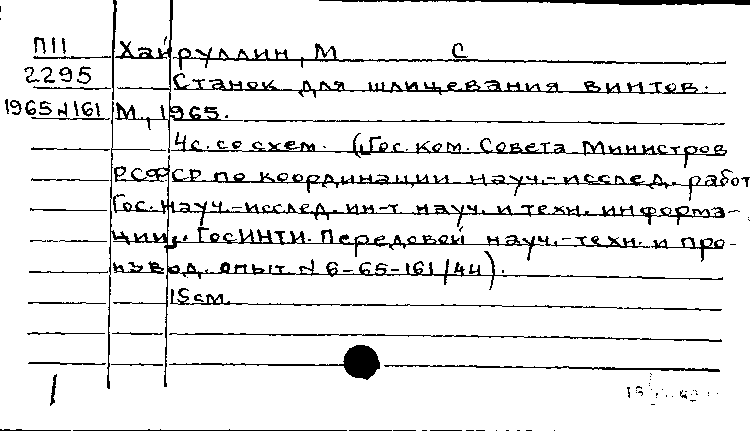 П11 Хайруллин, М С
2295 Станок для шлицевания винтов.
1965 N161 М., 1965.
4с. со схем. (Гос. ком. Совета Министров
РСФСР по координации науч.-исслед. работ
Гос. науч.-исслед. ин-т науч. и техн. информа-
ции. ГосИНТИ. Передовой науч.-техн. и про-
извод. опыт N 6-65-161/44).
15см.
1